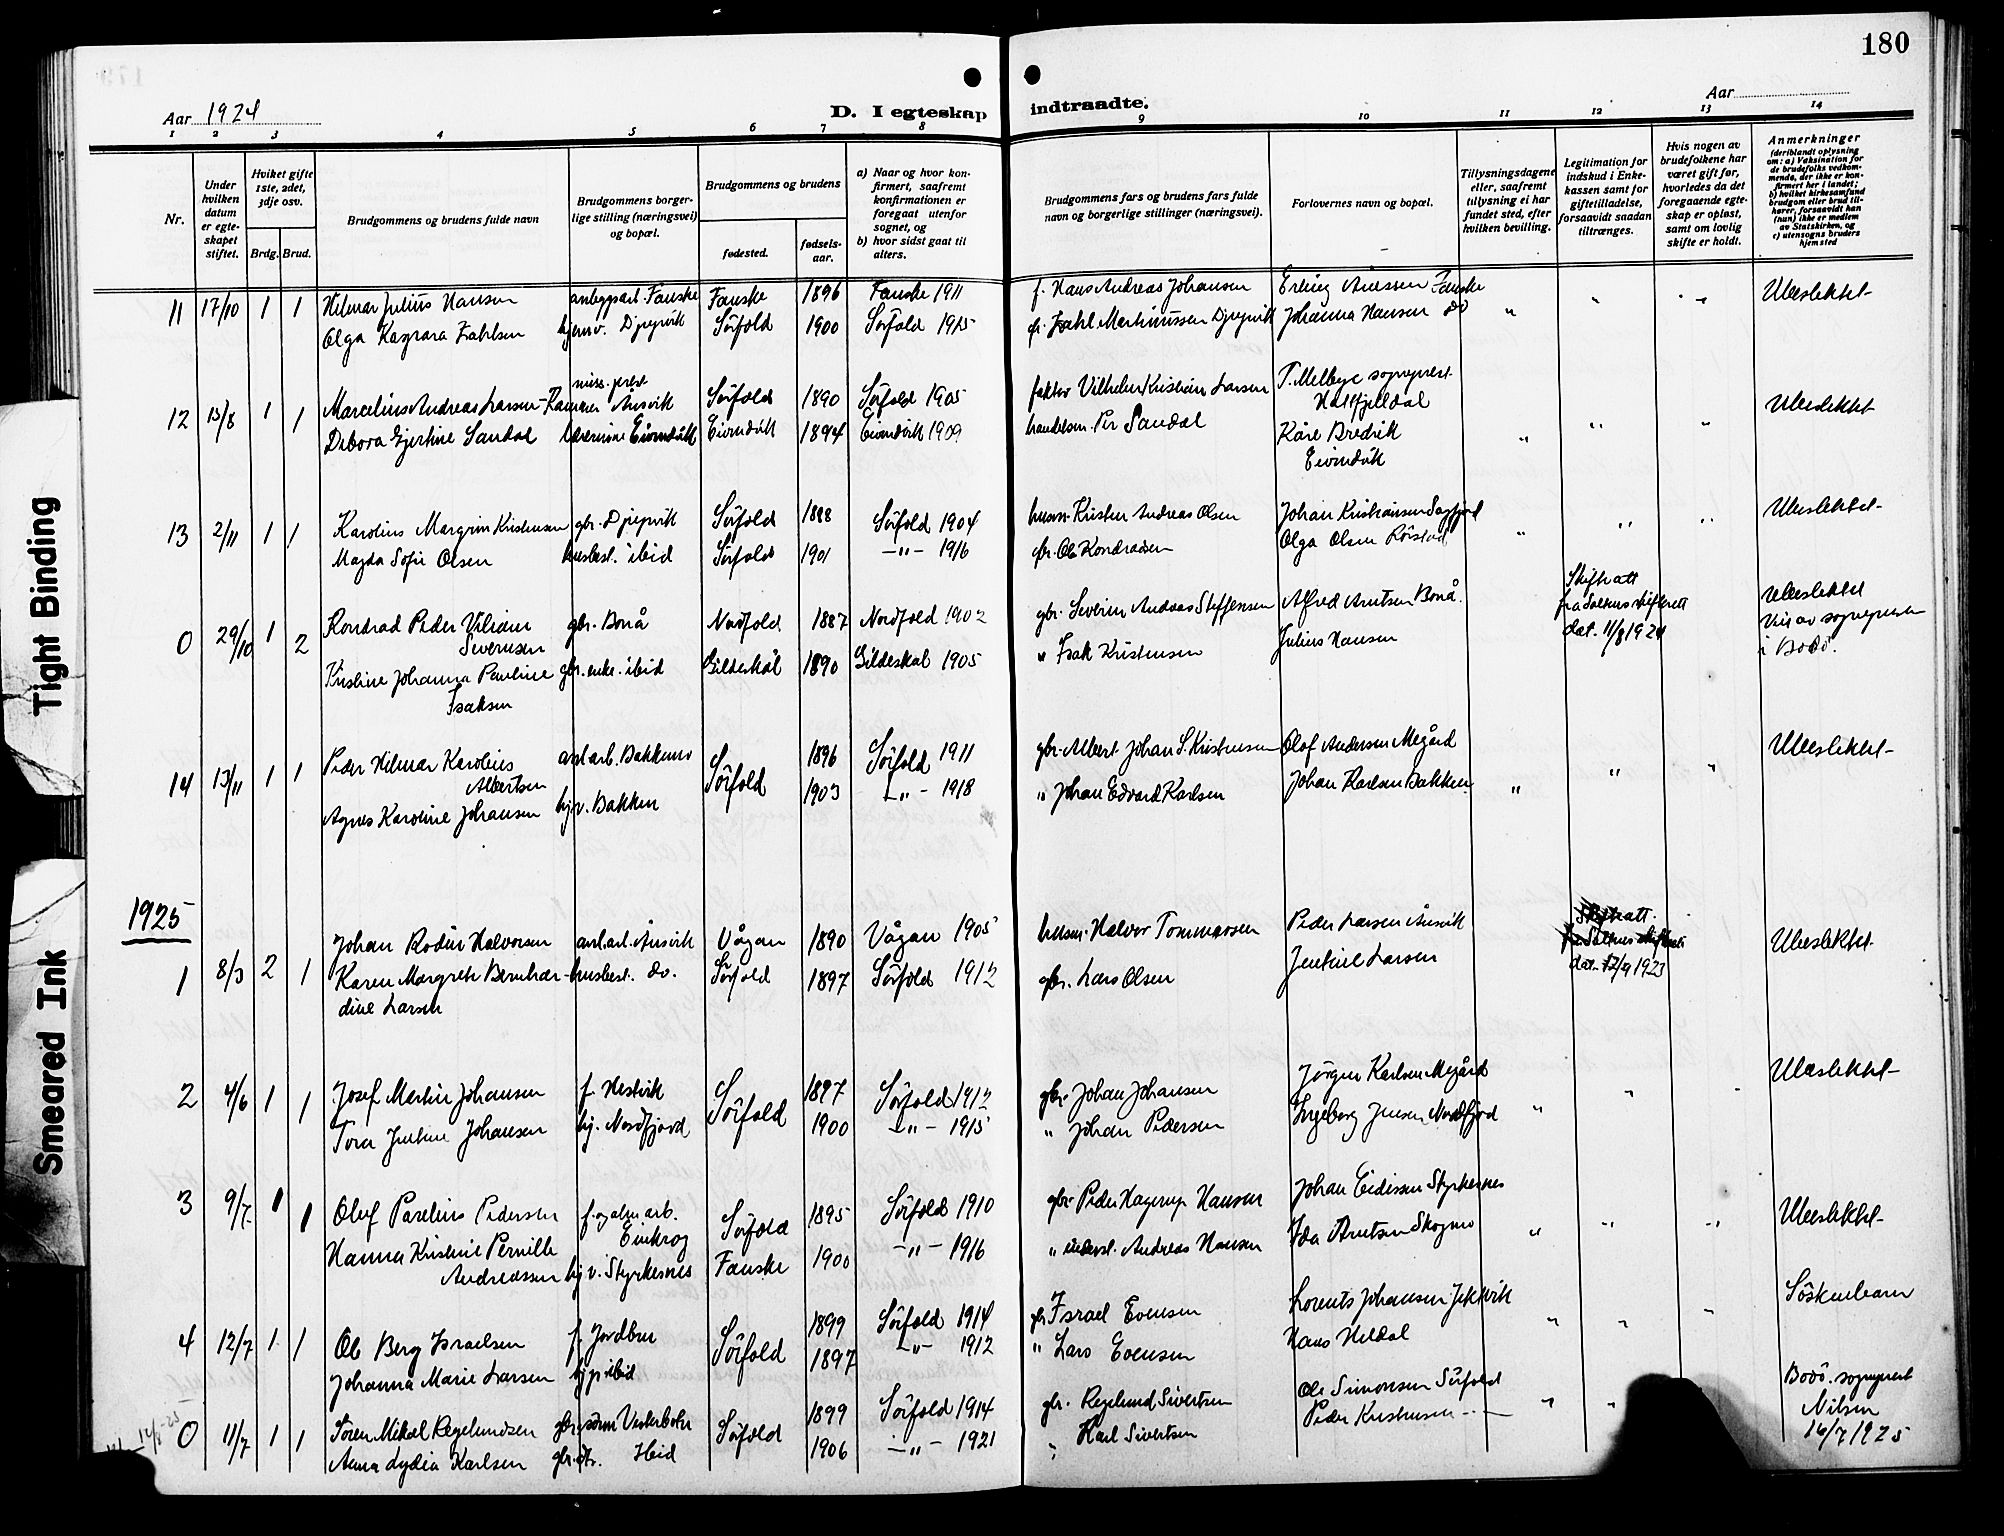 180
Aar 1924
D. I egteskap
indtraadte.
Aar
1 2 3 4 5 6 7 8 9 10 11 12 13 14
Nr.
Under hvilken datum er egteskapet stiftet.
Hvilket gifte 1ste, 2det, 3dje osv.
Brdg. Brud.
Brudgommens og brudens fulde navn
Brudgommens borgerlige stilling (næringsvei) og bopæl.
Brudgommens og brudens
fødested.
fødselsaar.
a) Naar og hvor konfirmert, saafremt konfirmationen er foregaat utenfor sognet, og
b) hvor sidst gaat til alters.
Brudgommens fars og brudens fars fulde navn og borgerlige stillinger (næringsvei).
Forlovernes navn og bopæl.
Tillysningsdagene eller, saafremt tillysning ei har fundet sted, efter hvilken bevilling.
Legitimation for indskud i Enkekassen samt for giftetilladelse, forsaavidt saadan tiltrænges.
Hvis nogen av brudefolkene har været gift før, hvorledes da det foregaaende egteskap er opløst, samt om lovlig skifte er holdt.
Anmerkninger
(deriblandt oplysning om: a) Vaksination for de brudefolks vedkommende, der ikke er konfirmert her i landet; b) hvilket kirkesamfund brudgom eller brud tilhører, forsaavidt han (hun) ikke er medlem av Statskirken, og c) utensogns bruders hjemsted
11 17/10 1 1 Hilmar Julius Hansen anlegsarb. Fauske Fauske 1896 Fauske 1911 f. Hans Andreas Johansen Erling Fauske Ubeslektet
Olga Kaspara Zahlsen hjemv. Djupvik Sörfold 1900 Sörfold 1915 Zahl Martinussen Djupvik Johanna Hansen do "
12 13/8 1 1 Marcelius Andreas Larsen miss. prest Ansvik Sörfold 1890 Sörfold 1905 faktor Vilhelm Kristian Larsen T. Melbye sogneprest Hattfjelldal Ubeslektet
Debora Gjertine Sandal Eivindvik Eivindvik 1894 Eivindvik 1909 handelsm. Per Sandal Kåre Bredvik Eivindvik "
13 2/11 1 1 Karolius Margrim Kristensen gbr. Djupvik Sörfold 1898 Sörfold 1904 husm. Kristen Andreas Olsen Johan Kristiansen Sagfjord Ubeslektet
Magda Sofie Olsen husbest. ibid Sörfold 1901 -"- 1916 gbr. Ole Kondradsen Olga Olsen Rörstad "
0 29/10 1 2 Kondrad Peder Viliam Severinsen gbr. Bonå Nordfold 1887 Nordfold 1902 gbr. Severin Andreas Steffensen Alfred Arntsen Bonå. Skifteatt fra Saltens skifterett dat. 11/8 1924 Ubeslektet Viet av sognepresten i Bodö.
Kristine Johanna Pauline Isaksen gbr. enke. ibid Gildeskål 1890 Gildeskål 1905 " Isak Kristensen Julius Hansen
14 13/11 1 1 Peder Hilmar Karolius Albertsen anl.arb. Bakkemo Sörfold 1896 Sörfold 1911 gbr. Albert Johan S. Kristensen Olaf Andersen Megård Ubeslektet
Agnes Karoline Johansen hj.v. Bakken 1903 -"- 1918 " Johan Edvard Karlsen Johan Karlsen Bakken "
1925
1 8/3 2 1 Johan Rodin Halvorsen anl.arb. Ansvik Vågan 1890 Vågan 1905 husm. Halvor Tommassen Peder Larsen Ansvik Skifteatt. fra Saltens skifterett dat. 12/9 1923 Ubeslektet
Karen Margrete Bernhardine Larsen husbest. do. Sörfold 1897 Sörfold 1912 gbr. Lars Olsen Jentine Larsen
2 4/6 1 1 Josef Martin Johansen f. Hestvik Sörfold 1897 Sörfold 1912 gbr. Johan Johansen Jörgen Karlsen Megård Ubeslektet
Tora Jentine Johansen hj. Nordfjord 1900 -"- 1915 " Johan Pedersen Ingeborg Jensen Nordfjord "
3 9/7 1 1 Oluf Paulius Pedersen f. og alm. arb. Einkrog Sörfold 1895 Sörfold 1910 gbr. Peder Hagerup Hansen Johan Eidissen Styrkesnes Ubeslektet
Hanna Kristine Pernille Andreassen hj.v. Styrkesnes Fauske 1900 -"- 1916 " Andreas Hansen Ida Arntsen Skogmo "
4 12/7 1 1 Ole Berg Israelsen f. Jordbru Sörfold 1899 Sörfold 1914 gbr. Israel Evensen Lorents Johansen Jekkvik Söskenbarn
Johanna Marie Larsen ibid 1897 -"- 1912 " Lars Evensen Hans Heldal "
0 11/7 1 1 Sören Mikal Regelundsen gbr. sönn Vesterbotn Sörfold 1899 Sörfold 1914 gbr. Regelund Sivertsen Ole Simonsen Sörfold Bodö. sogneprest Nilsen 16/7 1925
Anna Lydia Karlsen gbr. dtr. Ibid 1906 -"- 1921 " Karl Sivertsen Peder Kristensen -"-
Tight Binding
Smeared Ink